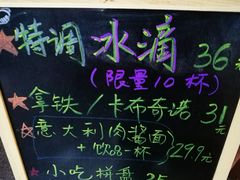 特调 冰滴 36
(限量10杯)
拿铁/卡布奇诺 31元
意大利肉酱面
+饮品一杯 29.9元
小吃拼盘 35